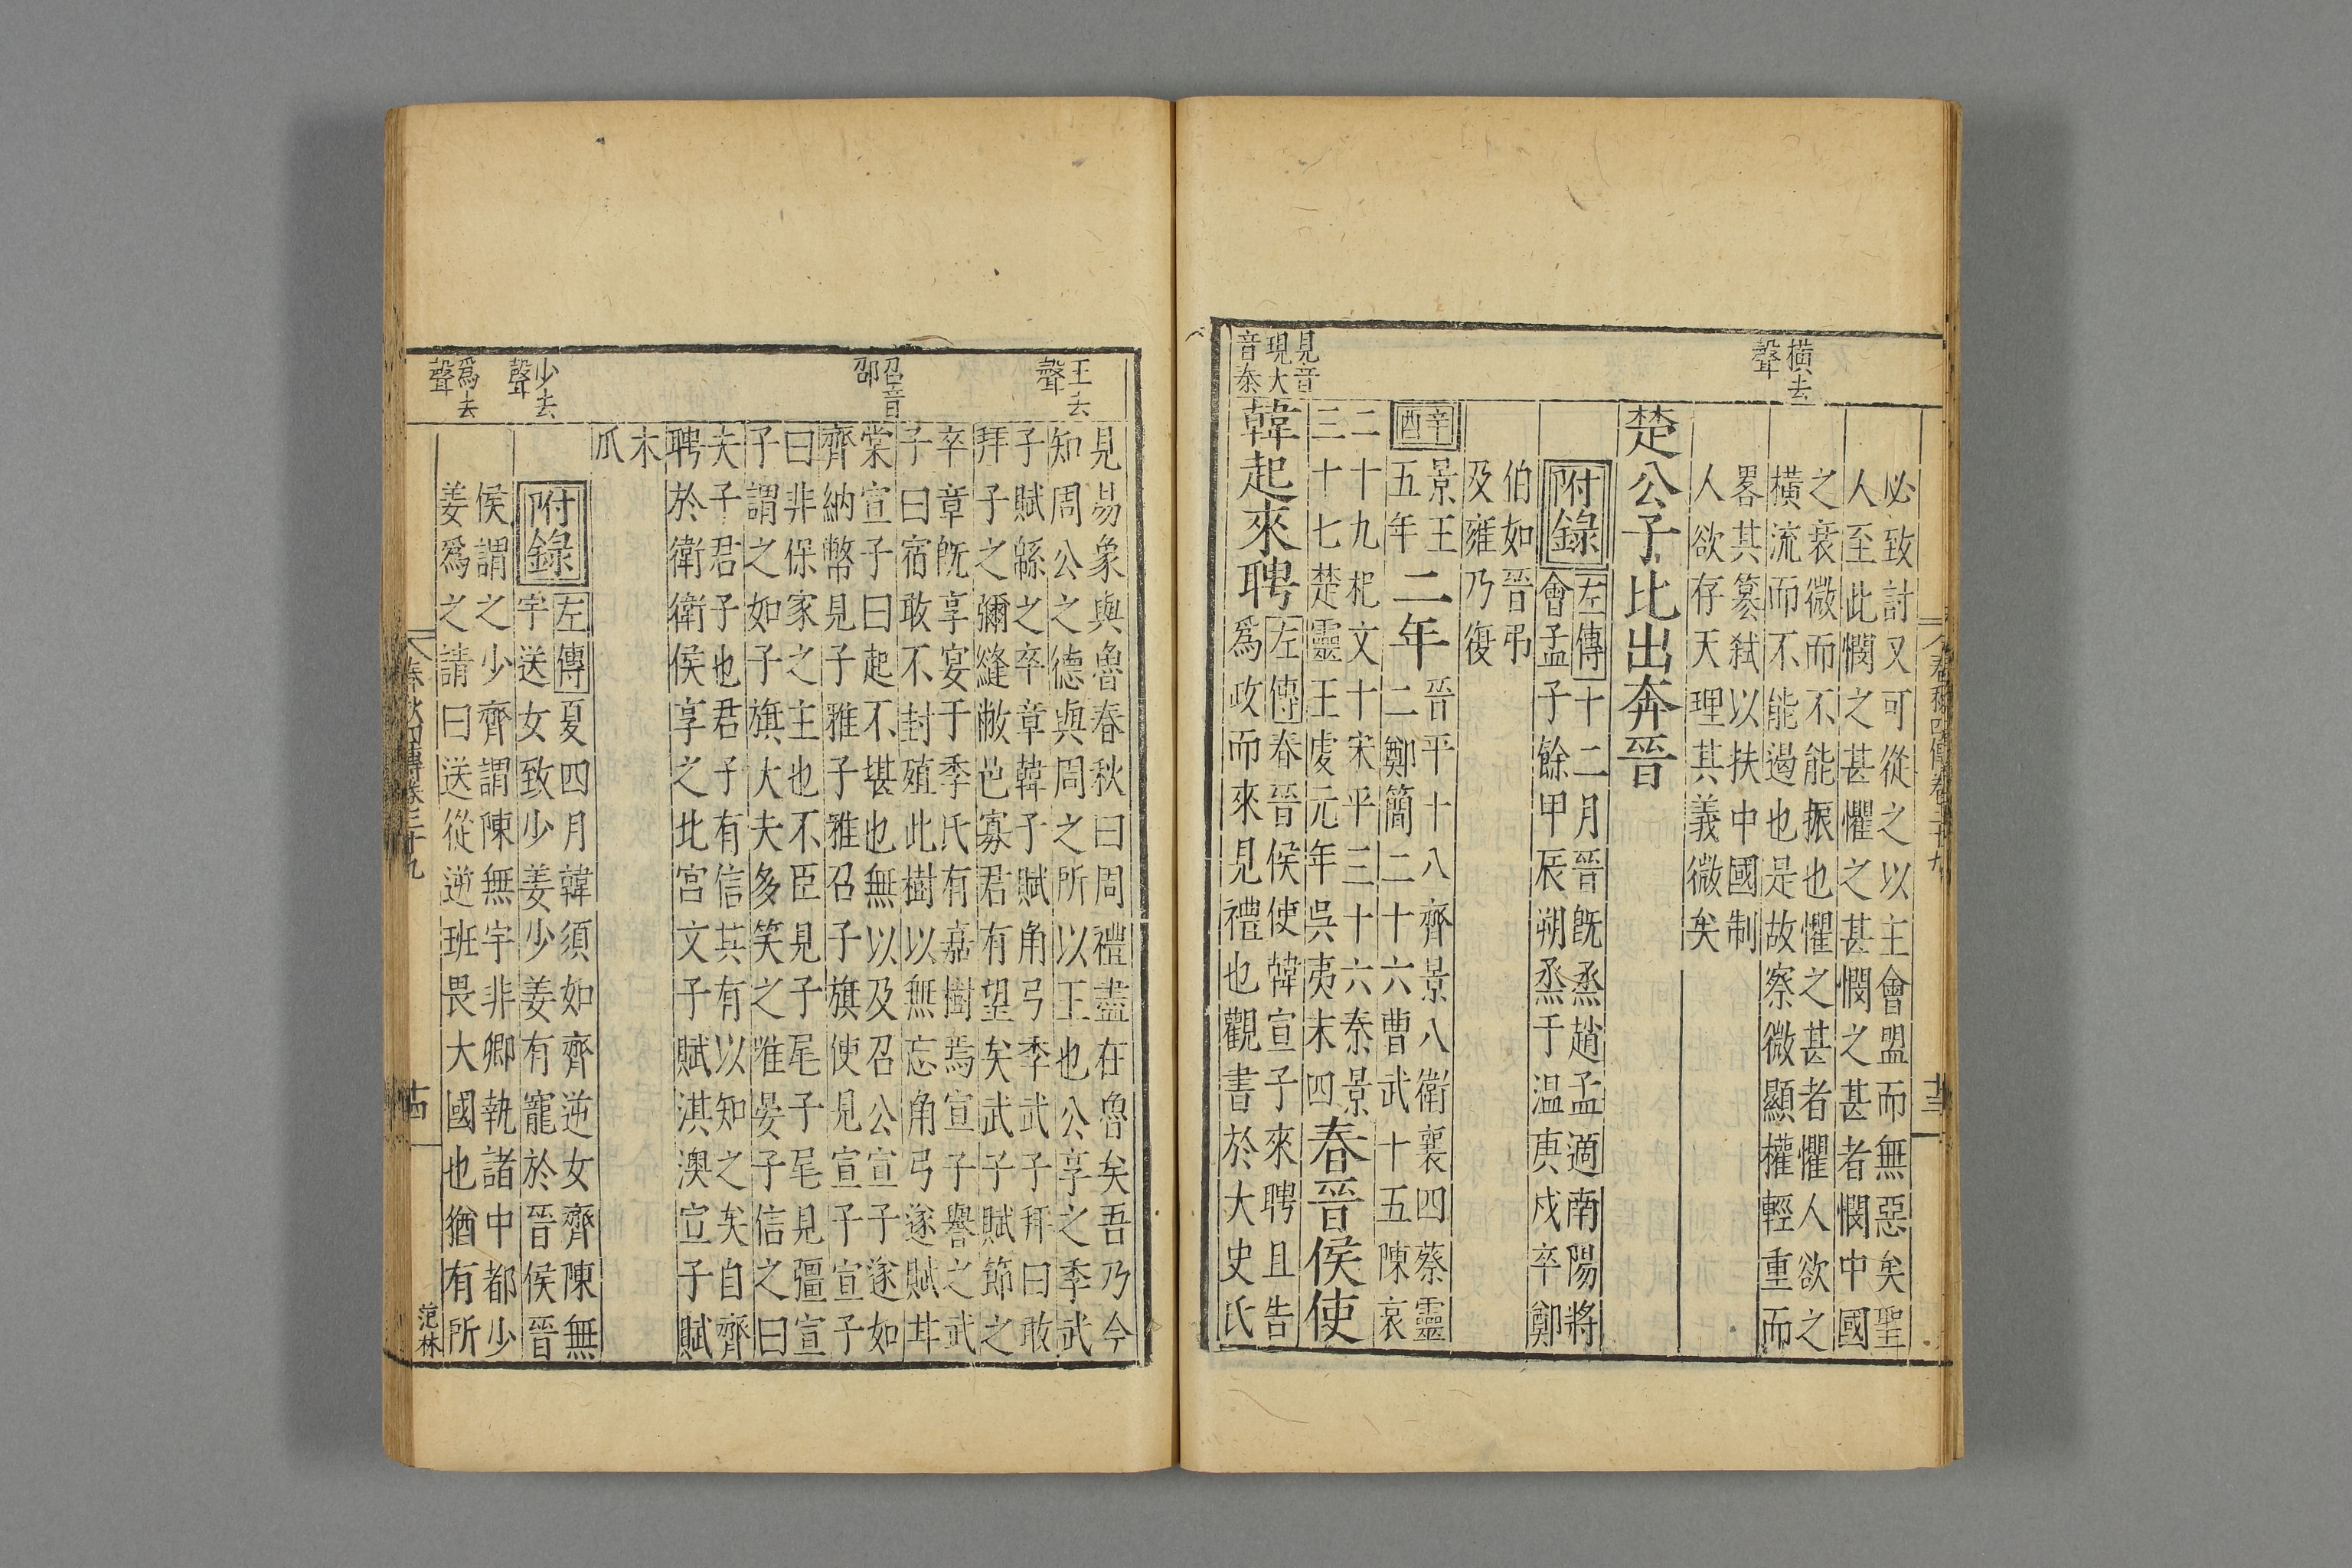 橫去
聲
見音
現大
音泰
必致討又可從之以主會盟而無惡矣聖
人至此憫之甚懼之甚憫之甚者憫中國
之衰微而不能振也懼之甚者懼人欲之
橫流而不能遏也是故察微顯權輕重而
畧其篡弒以扶中國制
人欲存天理其義微矣
楚公子比出奔晉
附錄
左傳十二月晉旣烝趙孟適南陽將
會孟子餘甲辰朔烝于温庚戍卒鄭
伯如晉弔
及雍乃復
辛酉
景王
五年
二年
晉平十八齊景八衛襄四蔡靈
二鄭簡二十六曹武十五陳哀
二十九杞文十宋平三十六秦景
三十七楚靈王虔元年吳夷末四
春晉侯使
韓起來聘
左傳春晉侯使韓宣子來聘且告
爲政而來見禮也觀書於大史氏
春秋四傳卷三十九
十三
王去
聲
召音
邵
少去
聲
爲去
聲
見昜象與魯春秋曰周禮盡在魯矣吾乃今
知周公之德與周之所以王也公享之季武
子賦緜之卒章韓子賦角弓季武子拜曰敢
拜子之彌縫敝邑寡君有望矣武子賦節之
卒章旣享宴于季氏有嘉樹焉宣子譽之武
子曰宿敢不封殖此樹以無忘角弓遂賦甘
棠宣子曰起不堪也無以及召公宣子遂如
齊納幣見子雅子雅召子旗使見宣子宣子
曰非保家之主也不臣見子尾子尾見彊宣
子謂之如子旗大夫多笑之唯晏子信之曰
夫子君子也君子有信其有以知之矣自齊
聘於衛衛侯享之北宮文子賦淇澳宣子賦
木
瓜
附錄
左傳夏四月韓須如齊逆女齊陳無
宇送女致少姜少姜有寵於晉侯晉
侯謂之少齊謂陳無宇非卿執諸中都少
姜爲之請曰送從逆班畏大國也猶有所
春秋四傳卷三十九
十四
范林